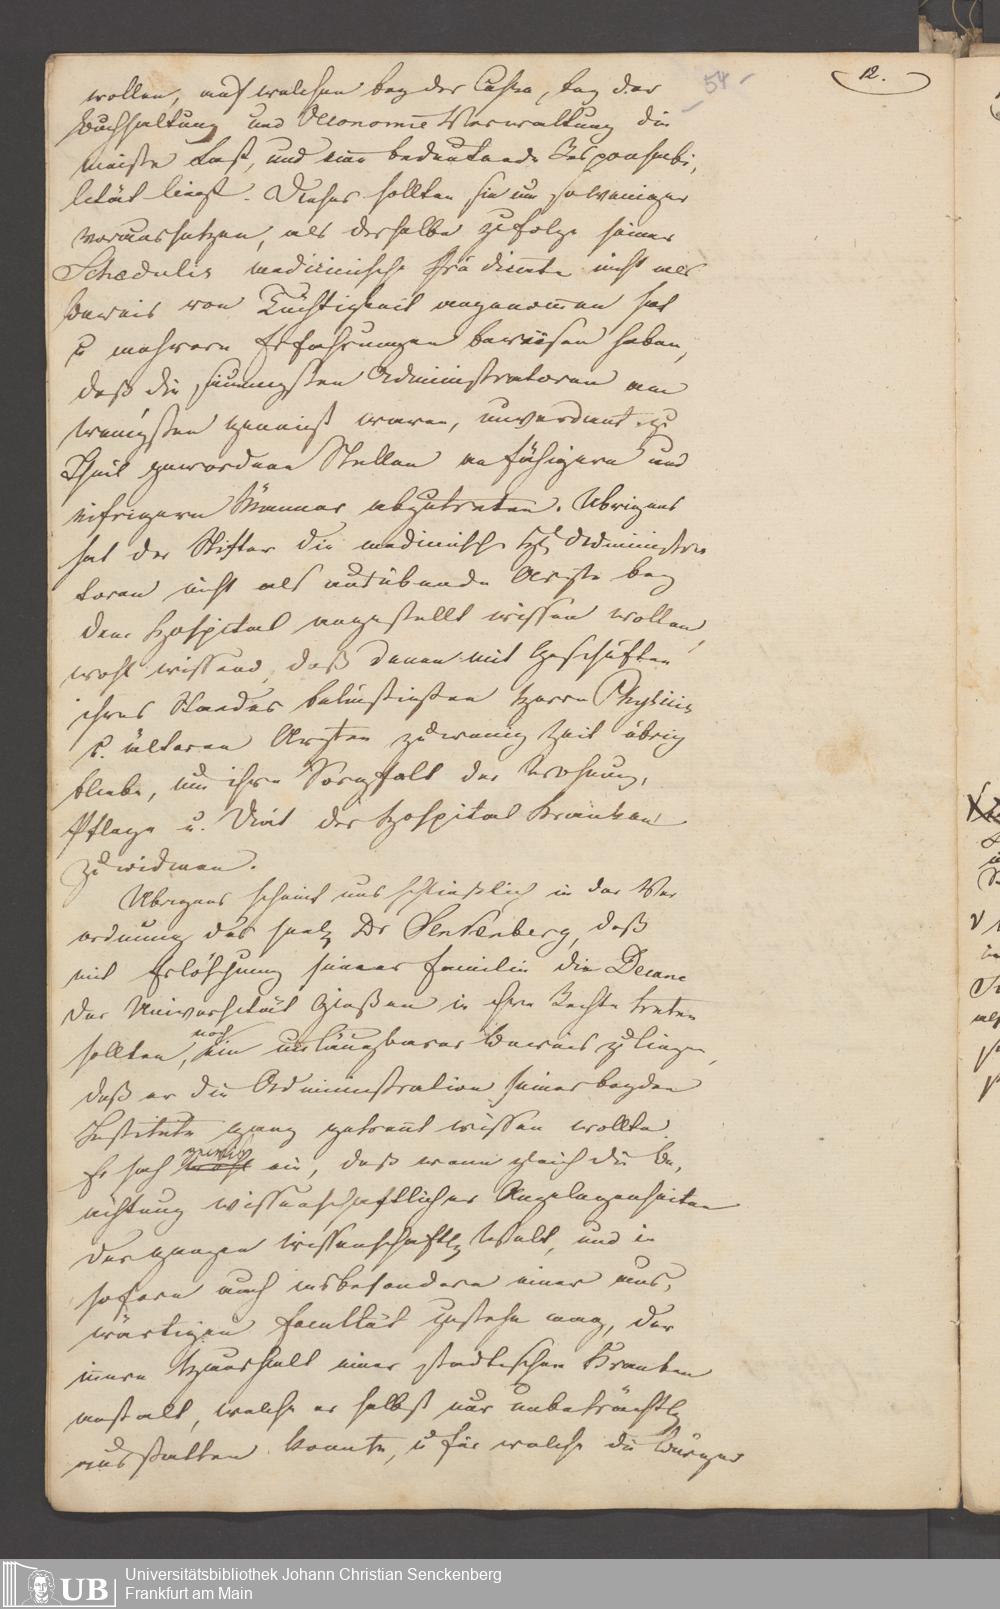 12.
54
wollen, auf welchen bey der Cassa, bey der
Buchhaltung und Oeconomie Verwaltung die
meiste Last, und eine bedeutende Responsabi,
lität liegt. Dieses sollten sie um so weniger
voraussetzen, als derselbe zufolge seiner
Schedulis medicinische Prädicate nicht als
Beweis von Tüchtigkeit angenommen hat
u mehrere Erfahrungen bewiesen haben,
daß die Administratoren am
wenigsten geneigt waren, unverdient zu
Theil gewordene Stellen an fähigere und
eifrigere Männer abzutreten. Übrigens
hat der Stifter die medicinisch Administra
toren nicht als ausübende Aerzte bey
dem Hospital angestellt wissen wollen,
wohl wissend, daß denen mit Geschäften
ihres Standes belästigten Herrn Physicis
u. älteren Ärzten zu wenig Zeit übrig
bliebe, um ihre Sorgfalt der Wohnung,
Pflege u. Diät der Hospital Kranken
zu widmen.
Übrigens scheint uns schließlich in der Ver
ordnung des seel Dr Senkenberg, daß
mit Erlöschung seiner Familie die Decane
der Universität Gießen in ihre Rechte treten
sollten, noch ein unläugbarer Beweis zu liegen,
daß er die Administration seiner beyden
Institute ganz getrennt wissen wollte
Er sah ein, daß wenn gleich die Be,
achtung wissenschaftlicher Angelegenheiten
der ganzen wissenschaftl Welt, und in
sofern auch insbesondere einer aus,
wärtigen Facultät zustehn mag, der
innere Haushalt einer städtischen Kranken
anstalt, welche er selbst nur unbeträchtl
ausstatten konnte, u für welche die Bürger
UB
Universitätsbibliothek Johann Christian Senckenberg
Frankfurt am Main